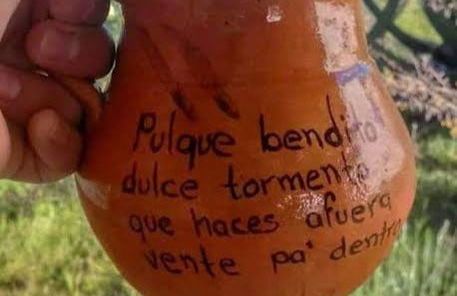 Pulque bendito
dulce tormento
que haces afuera
vente pa' dentro